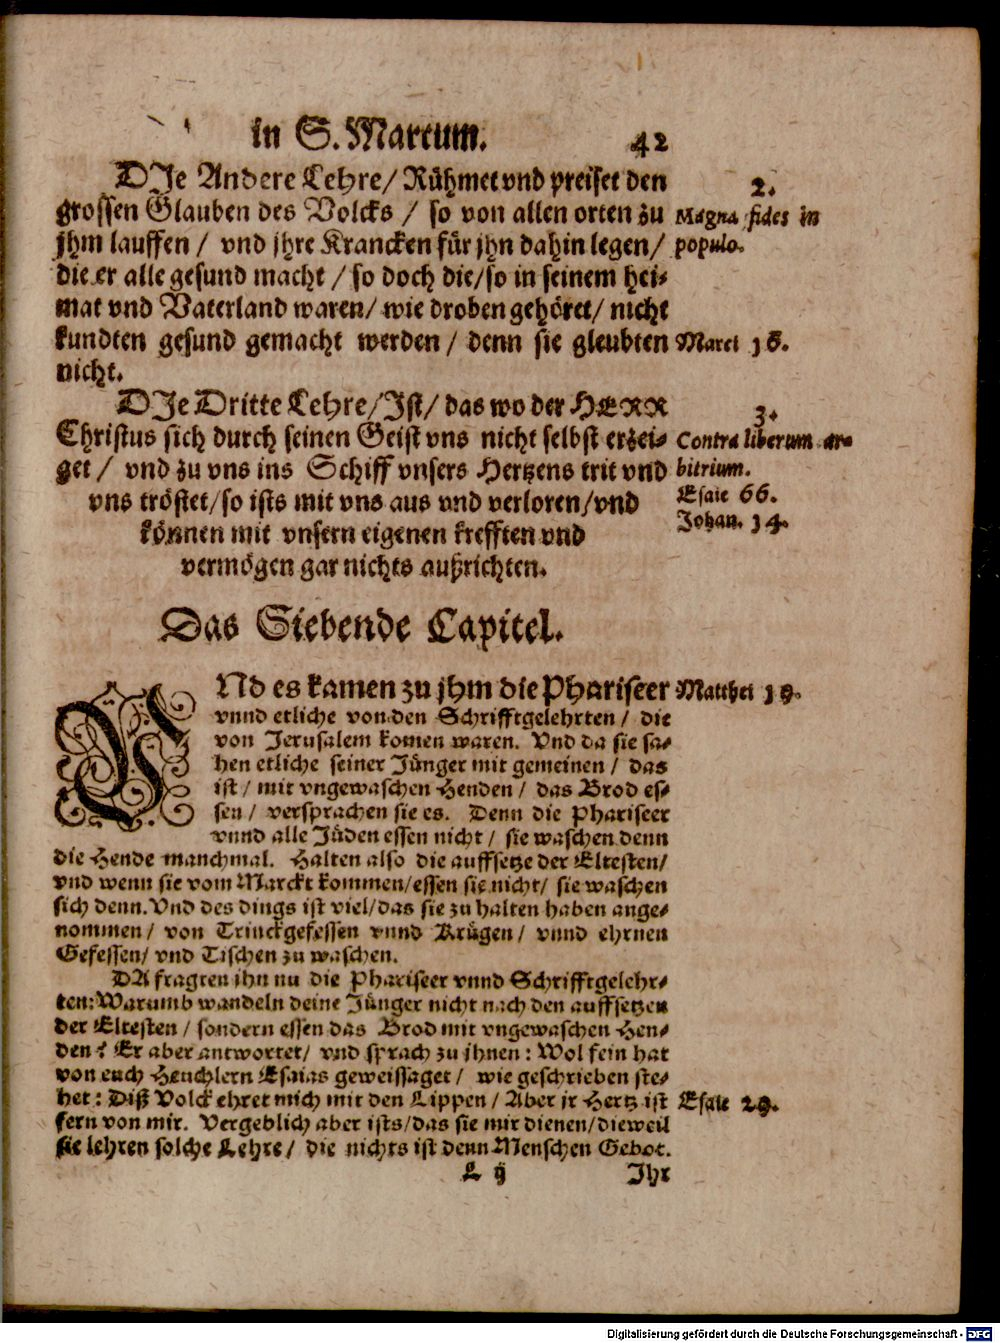 in S. Marcum. 42
DJe Andere Lehre/ Rühmet vnd preiset den
grossen Glauben des Volcks / so von allen orten zu
jhm lauffen / vnd jhre Krancken für jhn dahin legen/
die er alle gesund macht / so doch die/so in seinem hei-
mat vnd Vaterland waren/ wie droben gehöret/ nicht
kundten gesund gemacht werden / denn sie gleubten
nicht.
2.
Magna fides in
populo.
Marci 16.
DJe Dritte Lehre/Jst/ das wo der HERR
Christus sich durch seinen Geist vns nicht selbst erzei-
get / vnd zu vns ins Schiff vnsers Hertzens trit vnd
vns tröstet/so ists mit vns aus vnd verloren/vnd
können mit vnsern eigenen krefften vnd
vermögen gar nichts außrichten.
3.
Contra liberum ar-
bitrium.
Esaie 66.
Johan. 14.
Das Siebende Capitel.
VNd es kamen zu jhm die Phariseer
vnnd etliche von den Schrifftgelehrten / die
von Jerusalem komen waren. Vnd da sie sa-
hen etliche seiner Jünger mit gemeinen / das
ist / mit vngewaschen Henden / das Brod es-
sen / versprachen sie es. Denn die Phariseer
vnnd alle Jüden essen nicht / sie waschen denn
die Hende manchmal. Halten also die auffsetze der Eltesten/
vnd wenn sie vom Marckt kommen/essen sie nicht/ sie waschen
sich denn. Vnd des dings ist viel/das sie zu halten haben ange-
nommen / von Trinckgefessen vnnd Krügen / vnnd ehrnen
Gefessen/ vnd Tischen zu waschen.
Matthei 15.
DA fragten ihn nu die Phariseer vnnd Schrifftgelehr-
ten: Warumb wandeln deine Jünger nicht nach den auffsetzen
der Eltesten / sondern essen das Brod mit vngewaschen Hen-
den? Er aber antwortet/ vnd sprach zu ihnen: Wol fein hat
von euch Heuchlern Esaias geweissaget / wie geschrieben ste-
het: Diß Volck ehret mich mit den Lippen / Aber jr Hertz ist
fern von mir. Vergeblich aber ists/das sie mir dienen/dieweil
sie lehren solche Lehre/ die nichts ist denn Menschen Gebot.
Esaie 29.
L ij Jhr
Digitalisierung gefördert durch die Deutsche Forschungsgemeinschaft - DFG